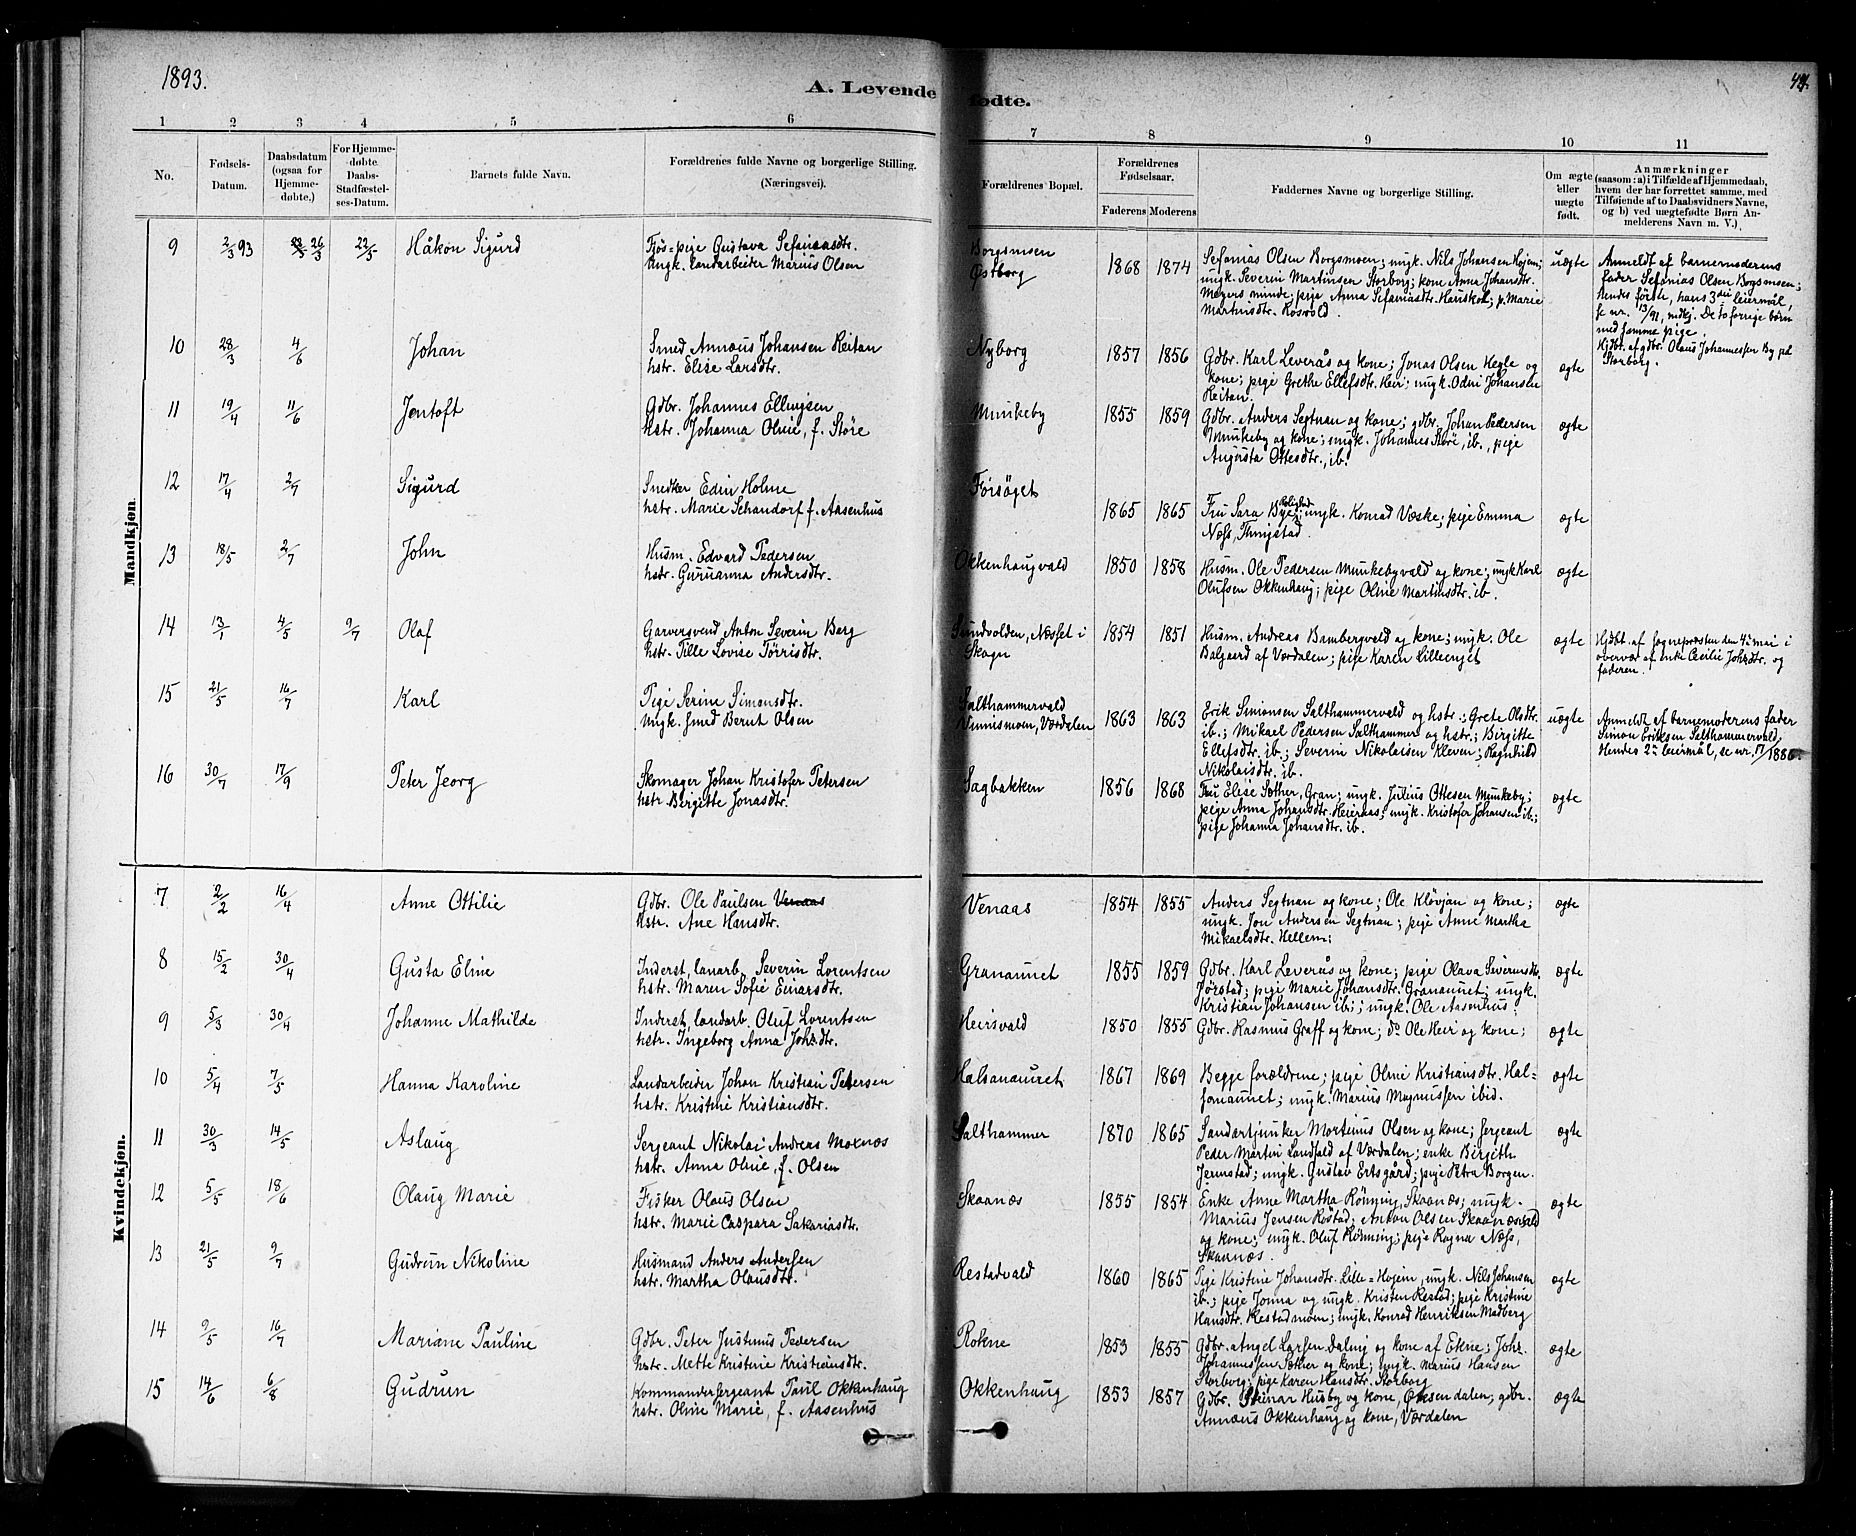 1893.
44.
A. Levende fødte.
1 2 3 4 5 6 7 8 9 10 11
No.
Fødsels-Datum.
Daabsdatum (ogsaa for Hjemmedøbte.)
For Hjemmedøbte Daabs-Stadfæstelses-Datum.
Barnets fulde Navn.
Forældrenes fulde Navne og borgerlige Stilling.
(Næringsvei).
Forældrenes Bopæl.
Forældrenes Fødselsaar.
Faderens Moderens
Faddernes Navne og borgerlige Stilling.
Om ægte eller uægte født.
Anmærkninger
(saasom: a) i Tilfælde af Hjemmedaab, hvem der har forrettet samme, med Tilføiende af to Daabsvidners Navne, og b) ved uægtefødte Børn Anmelderens Navn m. V.)
Mandkjøn.
9 2/3 93 26/3 22/5 Håkon Sigurd
Fjøs-pige Gustava Sefaniasdtr.
Ungk. landarbeider Marius Olsen
Borgsmoen
Østborg
1868 1874
Sefanias Olsen Borgsmoen; ungk. Nils Johansen Hojem;
ungk. Severin Martinsen Storborg; kone Anna Johansdtr.
Meyers minde; pige Anna Sefaniasdtr. Hauskol; p. Marie
Martinsdtr. Rosvold.
uægte
Anmeldt af barnemoderens
fader Sefanias Olsen Borgsmoen;
hendes første, hans 3die leiermål,
se nr. 13/91, mdkj. De to forrige børn
med samme pige.
10 28/3 4/6 Johan
Smed Annæus Johansen Reitan
hstr. Elise Larsdtr.
Nyborg
1857 1856
Gdbr. Karl Leverås og kone; Jonas Olsen Kegle og
kone; pige Grethe Ellefsdtr. Heir; ungk. Odin Johansen
Reitan.
ægte
Hjdbt. af gdbr. Olaus Johannessen By pd
Storborg.
11 19/4 11/6 Jentoft
Gdbr. Johannes Ellingsen
hstr. Johanna Oline, f. Støre
Munkeby
1855 1859
Gdbr. Anders Segtnan og kone; gdbr. Johan Pedersen
Munkeby og kone; ungk. Johannes Støre, ib., pige
Augusta Ottesdtr., ib.
ægte
12 17/4 2/7 Sigurd
Snedker Edin Holme
hstr. Marie Schandorf f. Aasenhus
Forsøget
1865 1865
Fru Sara Bye; ungk. Konrad Væske; pige Emma
Næss, Thingstad.
ægte
13 18/5 2/7 John
Husm. Edvard Pedersen
hstr. Gurianna Andersdtr.
Okkenhaugvald
1850 1858
Husm. Ole Pedersen Munkebyvald og kone; ungk Karl
Olufsen Okkenhaug; pige Oline Martinsdtr. ib.
ægte
14 13/1 4/5 9/7 Olaf
Garversvend Anton Severin Berg
hstr. Tille Lovise Tørrisdtr.
Sundvolden, Næsset i
Skogn
1854 1851
Husm. Andreas Bambergvald og kone; ungk. Ole
Balgaard af Værdalen; pige Karen Lilleenget
ægte
Hjdbt. af sognepræsten den 4de mai i
overvær af enke Cecilie Johsdtr. og
faderen.
15 21/5 16/7 Karl
Pige Serine Simonsdtr.
Ungk. smed Bernt Olsen
Salthammervald
Vinnismoen, Værdalen
1863 1863
Erik Simonsen Salthammervald og hstr.; Grete Olsdtr.
ib.; Mikael Pedersen Salthammer og hstr.; Birgitte
Ellefsdtr. ib.; Severin Nikolaisen Kleven; Ragnhild
Nikolaisdtr. ib.
uægte
Anmeldt af barnemoderens fader
Simon Eriksen Salthammervald.
Hendes 2det leiermål, se nr. 17/1886.
16 30/7 17/9 Peter Jeorg
Skomager Johan Kristofer Petersen
hstr. Birgitte Jonasdtr.
Sagbakken
1856 1868
Fru Elise Sæther, Gran; ungk. Julius Ottesen Munkeby;
pige Anna Johansdtr. Heieraas; ungk. Kristofer Johansen ib.;
pige Johanna Johansdtr. ib.
ægte
Kvindekjøn.
7 2/2 16/4 Anne Ottilie
Gdbr. Ole Paulsen Venaas
hstr. Ane Hansdtr.
Venaas
1854 1855
Anders Segtnan og kone; Ole Kløvjan og kone;
ungk. Jon Andersen Segtnan; pige Anne Martha
Mikaelsdtr. Hellem;
ægte
8 15/2 30/4 Gusta Eline
Inderst, lanarb. Severin Lorentsen
hstr. Maren Sofie Einarsdtr.
Granaunet
1855 1859
Gdbr. Karl Leverås og kone; pige Olava Severinsdtr.
Jørstad; pige Marie Johansdtr. Granaunet; ungk.
Kristian Johansen ib.; ungk. Ole Aasenhus;
ægte
9 5/3 30/4 Johanne Mathilde
Inderst, landarb. Oluf Lorentsen
hstr. Ingeborg Anna Johsdtr.
Heirsvald
1850 1855
Gdbr. Rasmus Graff og kone; do Ole Heir og kone;
ægte
10 5/4 7/5 Hanna Karoline
Landarbeider Johan Kristian Petersen
hstr. Kristine Kristiansdtr.
Halsanaunet
1867 1869
Begge forældrene; pige Oline Kristiansdtr. Hal-
sanaunet; ungk. Marius Magnussen ibid.
ægte
11 30/3 14/5 Aslaug
Sergeant Nikolai Andreas Moxnæs
hstr. Anna Oline, f. Olsen
Salthammer
1870 1865
Sandartjunker Mortinus Olsen og kone; sergeant
Peder Martin Landfald af Værdalen; enke Birgith
Jermstad; ungk. Gustav Ertsgård; pige Petra Borgen.
ægte
12 5/5 18/6 Olaug Marie
Fisker Olaus Olsen
hstr. Marie Caspara Sakariasdtr.
Skaanæs
1855 1854
Enke Anne Martha Rønning, Skaanæs; ungk.
Marius Jensen Rostad; Anton Olsen Skaanæsvald
og kone; ungk. Oluf Rønning; pige Ragna Næss,
Skaanæs.
ægte
13 21/5 9/7 Gudrun Nikoline
Husmand Anders Andersen
hstr. Martha Olausdtr.
Restadvald
1860 1865
Pige Kristine Johansdtr. Lille-Hojem, ungk. Nils Johansen
ib.; pige Jonna og ungk. Kristen Restad; pige Kristine
Hansdtr. Restadmoen; ungk. Konrad Henriksen Madberg
ægte
14 9/5 16/7 Mariane Pauline
Gdbr. Peter Justinus Pedersen
hstr. Mette Kristine Kristiansdtr.
Rokne
1853 1855
Gdbr. Angel Larsen Daling og kone af Ekne; Johs.
Johannessen Sæther og kone; ungk. Marius Hansen
Storborg; pige Karen Hansdtr. Storborg
ægte
15 14/6 6/8 Gudrun
Kommandersergeant Paul Okkenhaug
hstr. Oline Marie, f. Aasenhus
Okkenhaug
1853 1857
Gdbr. Steinar Husby og kone, Ørkesendalen; gdbr.
Annæus Okkenhaug og kone, Værdalen
ægte